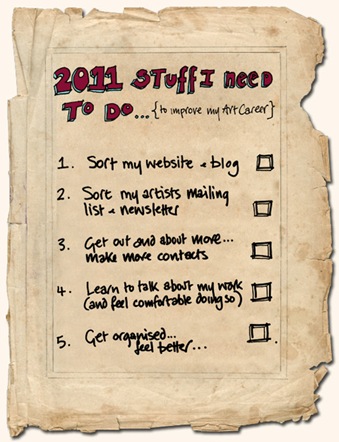 2011 STUFF I need
TO DO... {to improve my Art Career}
1. Sort my website + blog
2. Sort my artists mailing
list + newsletter
3. Get out and about more...
make more contacts
4. Learn to talk about my work
(and feel comfortable doing so)
5. Get organised...
feel better...